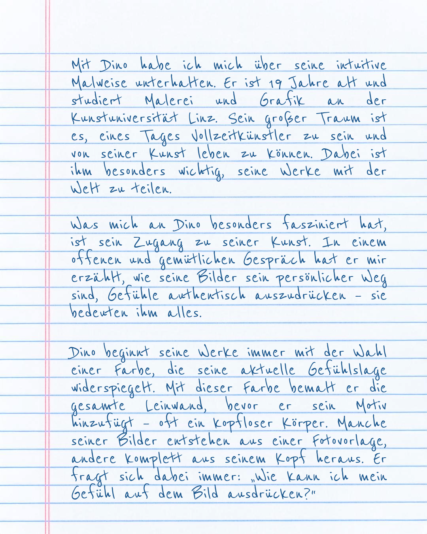 Mit Dino habe ich mich über seine intuitive
Malweise unterhalten. Er ist 19 Jahre alt und
studiert Malerei und Grafik an der
Kunstuniversität Linz. Sein großer Traum ist
es, eines Tages Vollzeitkünstler zu sein und
von seiner Kunst leben zu können. Dabei ist
ihm besonders wichtig, seine Werke mit der
Welt zu teilen.
Was mich an Dino besonders fasziniert hat,
ist sein Zugang zu seiner Kunst. In einem
offenen und gemütlichen Gespräch hat er mir
erzählt, wie seine Bilder sein persönlicher Weg
sind, Gefühle authentisch auszudrücken – sie
bedeuten ihm alles.
Dino beginnt seine Werke immer mit der Wahl
einer Farbe, die seine aktuelle Gefühlslage
widerspiegelt. Mit dieser Farbe bemalt er die
gesamte Leinwand, bevor er sein Motiv
hinzufügt – oft ein kopfloser Körper. Manche
seiner Bilder entstehen aus einer Fotovorlage,
andere komplett aus seinem Kopf heraus. Er
fragt sich dabei immer: „Wie kann ich mein
Gefühl auf dem Bild ausdrücken?"